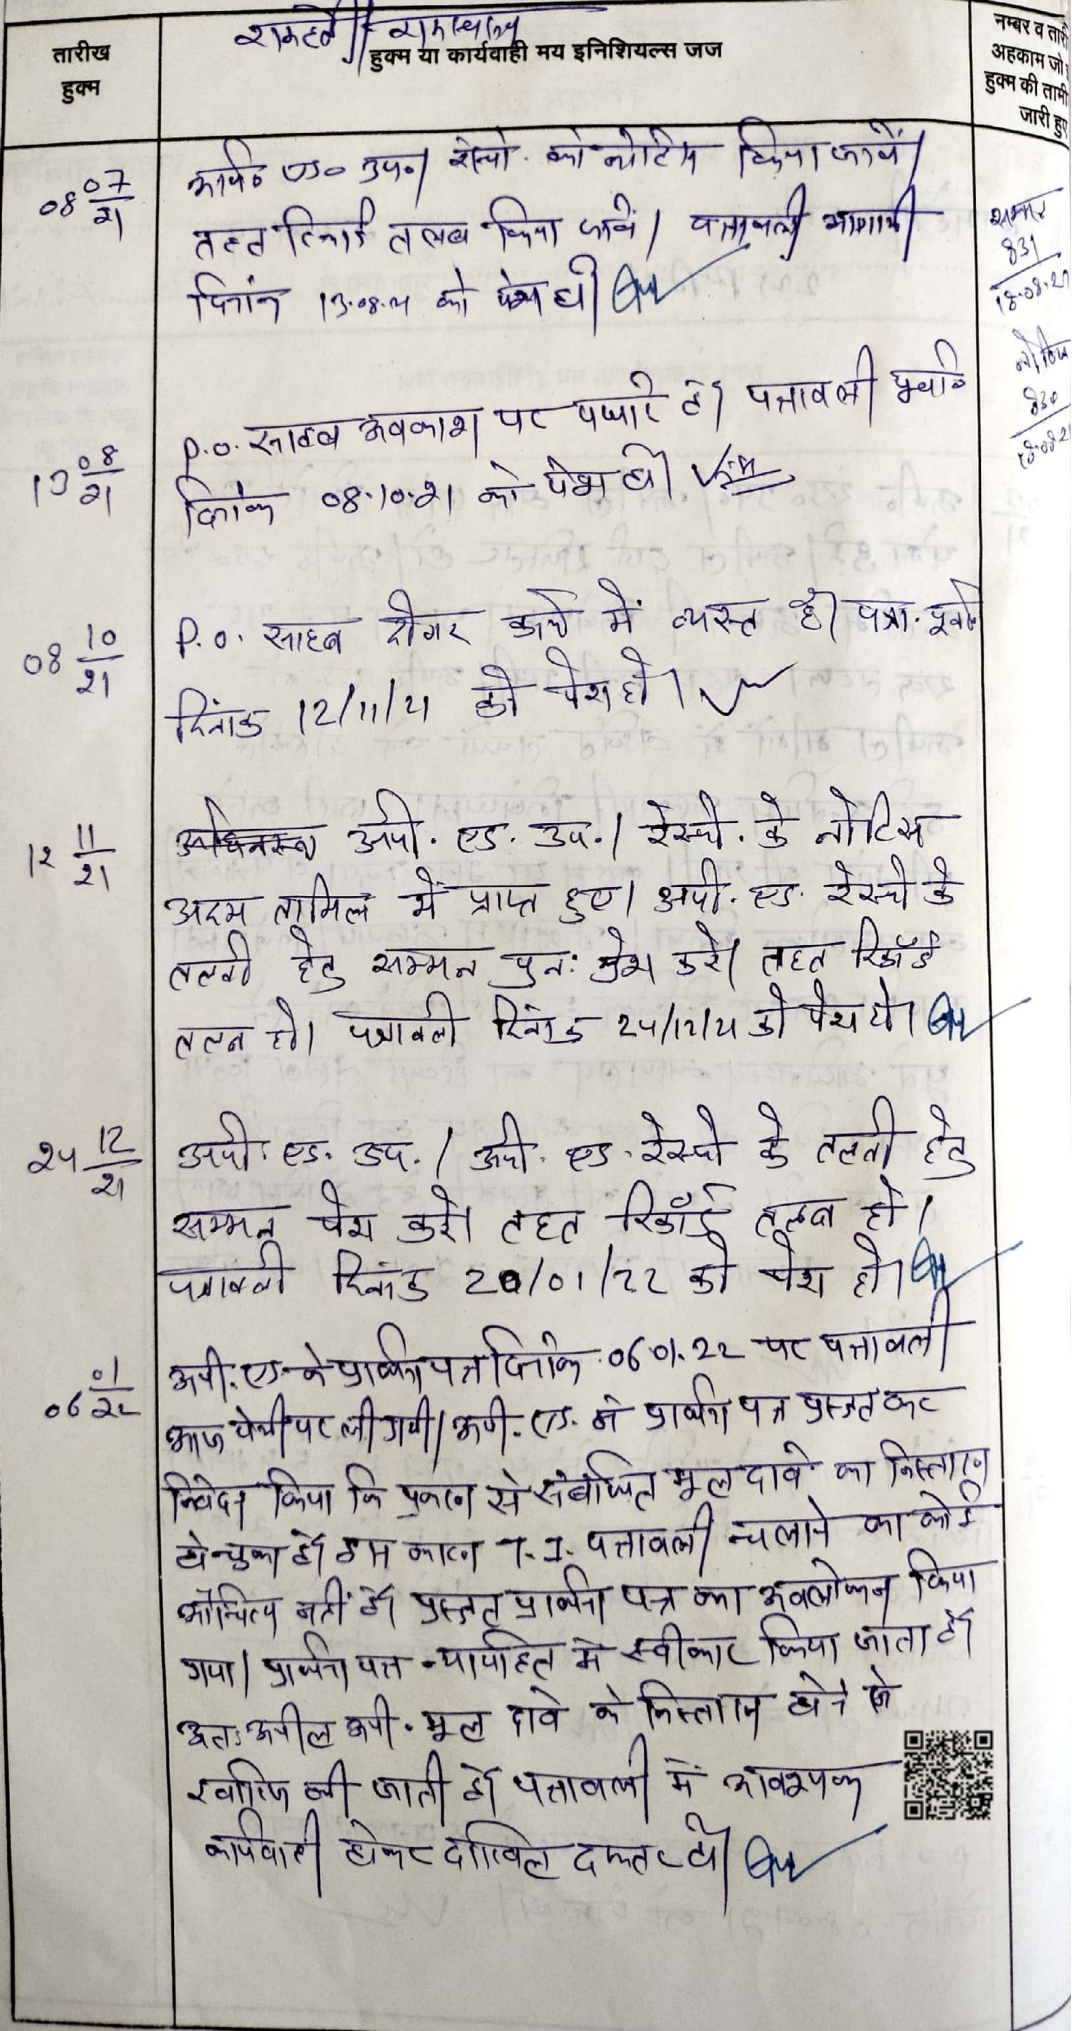 तारीख
हुक्म
रामहते // रामस्थान
हुक्म या कार्यवाही मय इनिशियल्स जज
नम्बर व तारी
अहकाम जो
हुक्म की तामी
जारी हुए
08 07/21
अपी० एड० उप०। रेस्पो. को नोटिस किया जावें।
तहत रिकार्ड तलब किया जावें। पत्रावली आगामी
दिनांक 13.08.21 को पेश हो।
सम्मन
831
18-08-21
नोटिस
830
18-08-21
13 08/21
P.O. साहब अवकाश पर पधारे है। पत्रावली पूर्वानु
दिनांक 08.10.21 को पेश हो।
08 10/21
P.O. साहब दीगर कार्य में व्यस्त है। पत्रा. पूर्वा
दिनांक 12/11/21 को पेश हो।
12 11/21
अपी. एड. उप.। रेस्पो. के नोटिस
अदम तामिल में प्राप्त हुए। अपी. एड. रेस्पो के
तलबी हेतु सम्मन पुनः पेश करे। तहत रिकॉर्ड
तलब हो। पत्रावली दिनांक 24/12/21 को पेश हो।
24 12/21
अपी. एड. उप.। अपी. एड. रेस्पो के तलबी हेतु
सम्मन पेश करे। तहत रिकॉर्ड तलब हो।
पत्रावली दिनांक 20/01/22 को पेश हो।
06 01/22
अपी. एड. के प्रार्थना पत्र दिनांक 06.01.22 पर पत्रावली
आज पेशी पर ली गयी। अपी. एड. ने प्रार्थना पत्र प्रस्तुत कर
निवेदन किया कि प्रकरण से संबंधित मूल दावे का निस्तारण
हो चुका है। इस कारण T.I. पत्रावली चलाने का कोई
औचित्य नहीं है। प्रस्तुत प्रार्थना पत्र का अवलोकन किया
गया। प्रार्थना पत्र न्यायहित में स्वीकार किया जाता है।
अतः अपील अपी. मूल दावे के निस्तारण होने से
खारिज की जाती है। पत्रावली में आवश्यक
कार्यवाही होकर दाखिल दफ्तर हो।